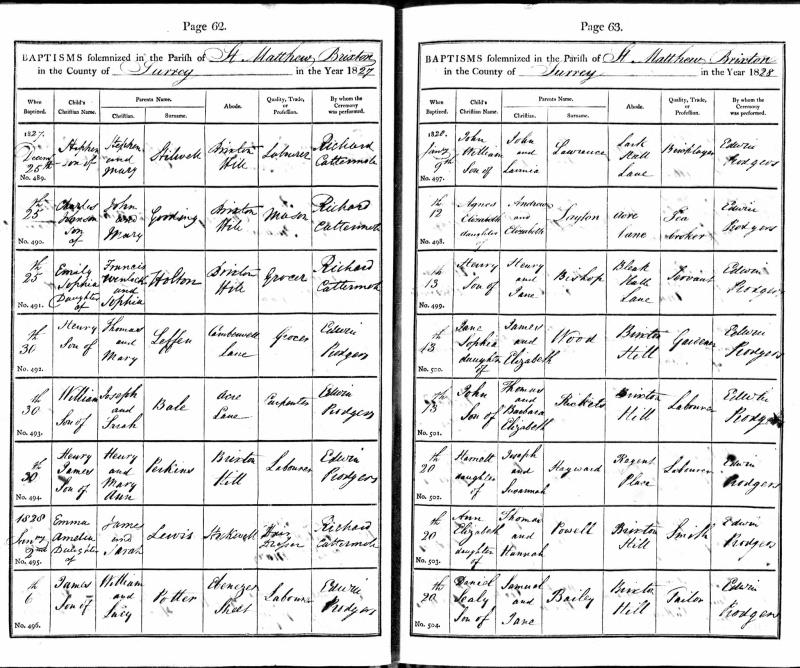 Page 62.
BAPTISMS solemnized in the Parish of St. Matthew, Brixton
in the County of Surrey in the Year 1827
When Baptized. Child's Christian Name. Parents Name. Christian. Surname. Abode. Quality, Trade, or Profession. By whom the Ceremony was performed.
1827. Decemr 25th No. 489. Stephen son of Stephen and Mary Stilwell Brixton Hill Labourer Richard Cattermole
25th No. 490. Charles son of John and Mary Gooding Brixton Hill Mason Richard Cattermole
25th No. 491. Emily Sophia Daughter of Francis Wenlock and Sophia Holton Brixton Hill Grocer Richard Cattermole
30th No. 492. Henry Son of Thomas and Mary Leffen Camberwell Lane Grocer Edwin Prodgers
30th No. 493. William Son of Joseph and Sarah Bale Acre Lane Carpenter Edwin Prodgers
30th No. 494. Henry James Son of Henry and Mary Ann Perkins Brixton Hill Labourer Edwin Prodgers
1828 Jany 2nd No. 495. Emma Amelia Daughter of James and Sarah Lewis Stockwell Hair Dresser Richard Cattermole
6th No. 496. James Son of William and Lucy Potter Ebenezer Street Labourer Edwin Prodgers
Page 63.
BAPTISMS solemnized in the Parish of St. Matthew Brixton
in the County of Surrey in the Year 1828
When Baptized. Child's Christian Name. Parents Name. Christian. Surname. Abode. Quality, Trade, or Profession. By whom the Ceremony was performed.
1828. Jany 9th No. 497. John William Son of John and Lawrence Lark Hall Lane Bricklayer Edwin Prodgers
12th No. 498. Agnes Elizabeth daughter of Andrew and Elizabeth Layton Acre Lane Tea broker Edwin Prodgers
13th No. 499. Henry Son of Henry and Jane Bishop Bleak Hall Lane Servant Edwin Prodgers
13th No. 500. Jane Sophia daughter of James and Elizabeth Wood Brixton Hill Gardener Edwin Prodgers
13th No. 501. John Son of Thomas and Barbara Elizabeth Rickets Brixton Hill Labourer Edwin Prodgers
20th No. 502. Harriott daughter of Joseph and Susannah Hayward Regent Place Labourer Edwin Prodgers
20th No. 503. Ann Elizabeth daughter of Thomas and Hannah Powell Brixton Hill Smith Edwin Prodgers
20th No. 504. Daniel Sealy Son of Samuel and Jane Bailey Brixton Hill Tailor Edwin Prodgers